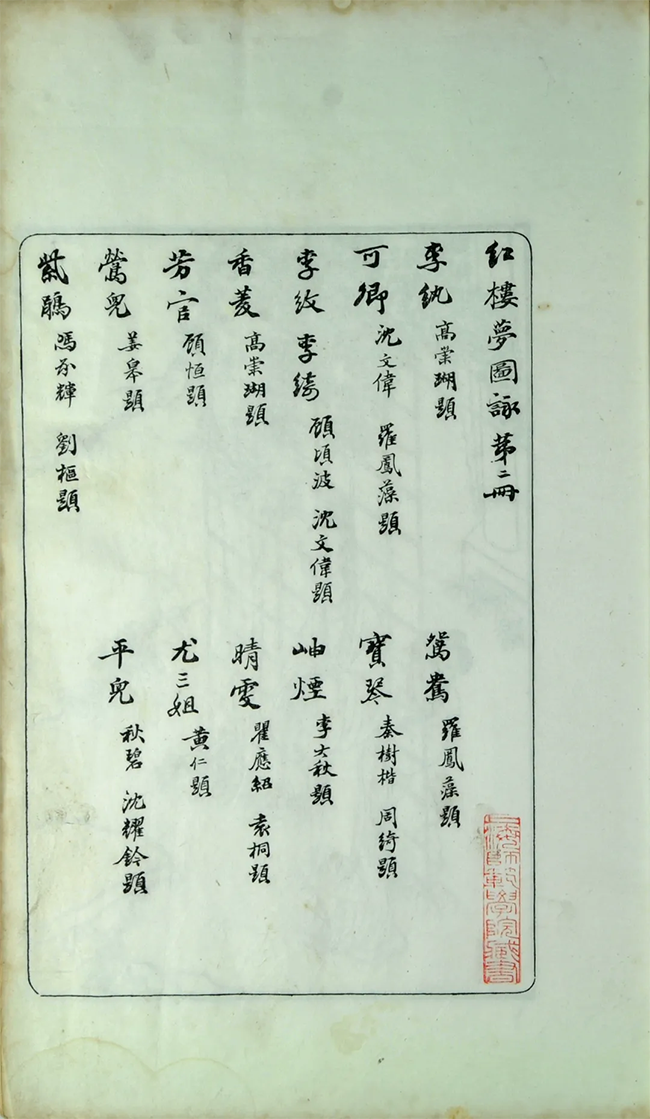 红樓夢圖詠第二冊
李紈 高崇瑚題
鴛鴦 羅鳳藻題
可卿 沈文偉 羅鳳藻題
寶琴 秦樹楷 周綺題
李紋 李綺 顧頃波 沈文偉題
岫煙 李大秋題
香菱 高崇瑚題
晴雯 瞿應紹 袁桐題
芳官 顧恒題
尤三姐 黃仁題
鶯兒 姜皋題
平兒 秋碧 沈耀鈴題
紫鵑 馮承輝 劉樞題
上海師範學院藏書